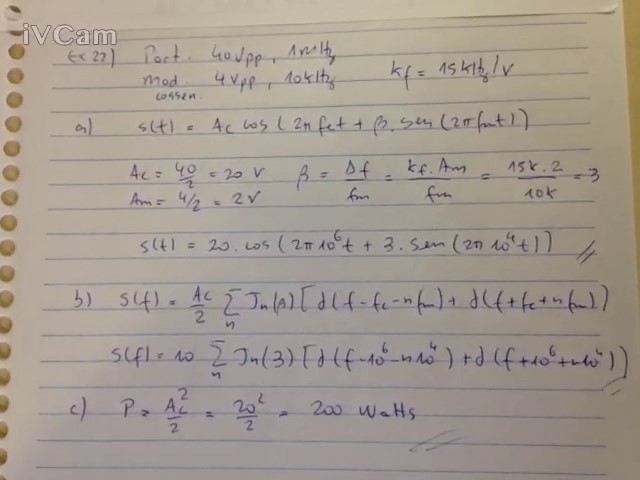 iVCam
Ex 22) Port. 40Vpp, 1MHz
Mod. 4Vpp, 10kHz kf = 15kHz/V
cossen.
a) s(t) = Ac cos(2πfct + β.sen(2πfmt))
Ac = 40/2 = 20 V β = Δf/fm = kf.Am/fm = 15k.2/10k = 3
Am = 4/2 = 2V
s(t) = 20.cos(2π10⁶t + 3.sen(2π10⁴t))
b) S(f) = Ac/2 Σn Jn(β)[d(f-fc-nfm) + d(f+fc+nfm)]
S(f) = 10 Σn Jn(3)[d(f-10⁶-n10⁴) + d(f+10⁶+n10⁴)]
c) P = Ac²/2 = 20²/2 = 200 Watts